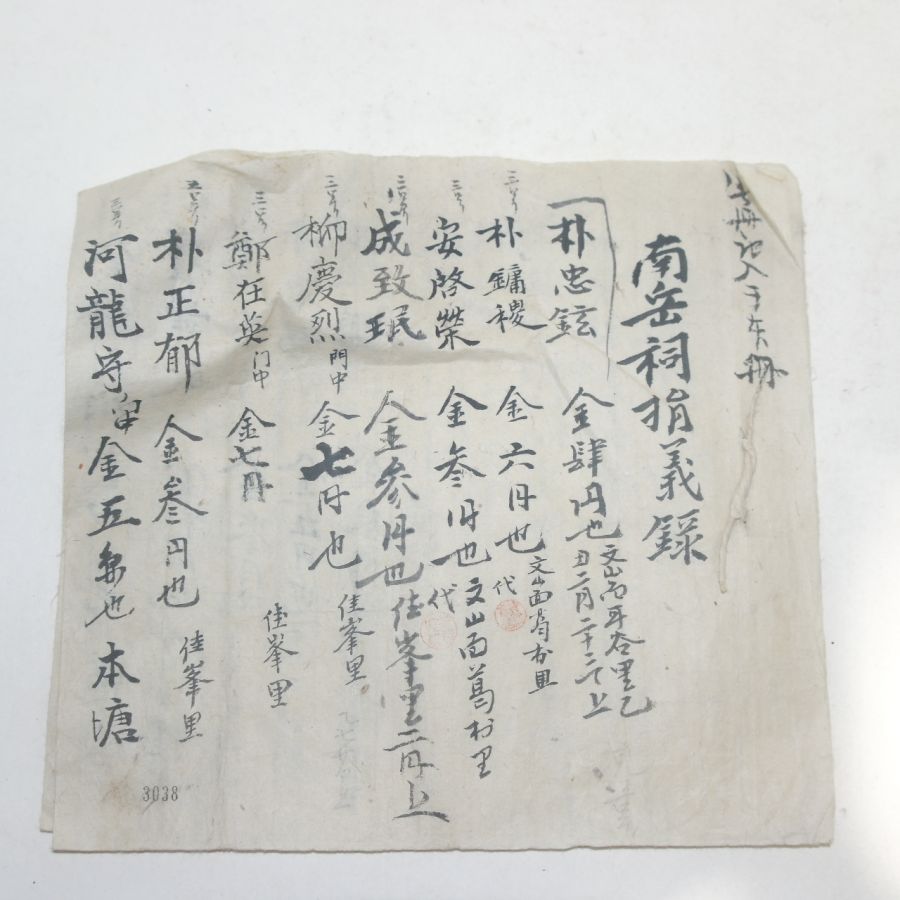 此冊記入于本冊
南岳祠捐義錄
朴忠鉉 金肆円也 文山面耳谷里乙丑二月二十二日上
朴鏞稷 金六円也 文山面葛村里 代
安啓榮 金叁円也 文山面葛村里 代
成致珉 金參円也 佳峯里二円上
柳慶烈 門中 金七円也 佳峯里
鄭在英 门中 金七円 佳峯里
朴正郁 金叁円也 佳峯里
河龍守 金五 也 本塘
3038